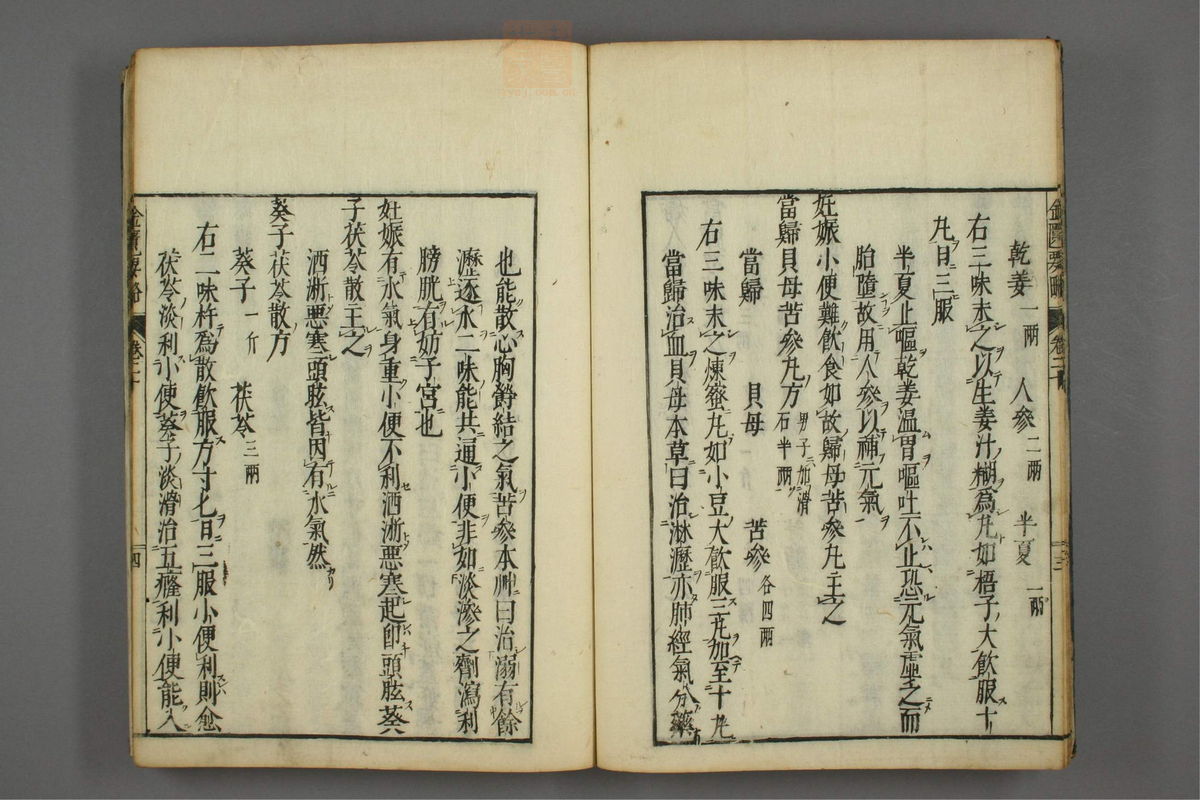 乾姜一兩 人參二兩 半夏一兩
右三味末之以生姜汁糊爲丸如梧子大飲服十
丸日三服
半夏止嘔乾姜温胃嘔吐不止恐元氣虛之而
胎墮故用人參以補元氣
妊娠小便難飲食如故歸母苦參丸主之
當歸貝母苦參丸方 男子加滑石半兩
當歸 貝母 苦參各四兩
右三味末之煉蜜丸如小豆大飲服三丸加至十丸
當歸治血貝母本草曰治淋瀝亦肺經氣分藥
也能散心胸欝結之氣苦參本艸曰治溺有餘
瀝逐水二味能共通小便非如淡滲之劑瀉利
膀胱有妨子宮也
妊娠有水氣身重小便不利洒淅惡寒起即頭眩葵
子茯苓散主之
洒淅惡寒頭眩皆因有水氣然
葵子茯苓散方
葵子一斤 茯苓三兩
右二味杵爲散飲服方寸匕日三服小便利則愈
茯苓淡利小便葵子淡滑治五癃利小便能入
金匱要略 卷三 三
金匱要略 卷三 四